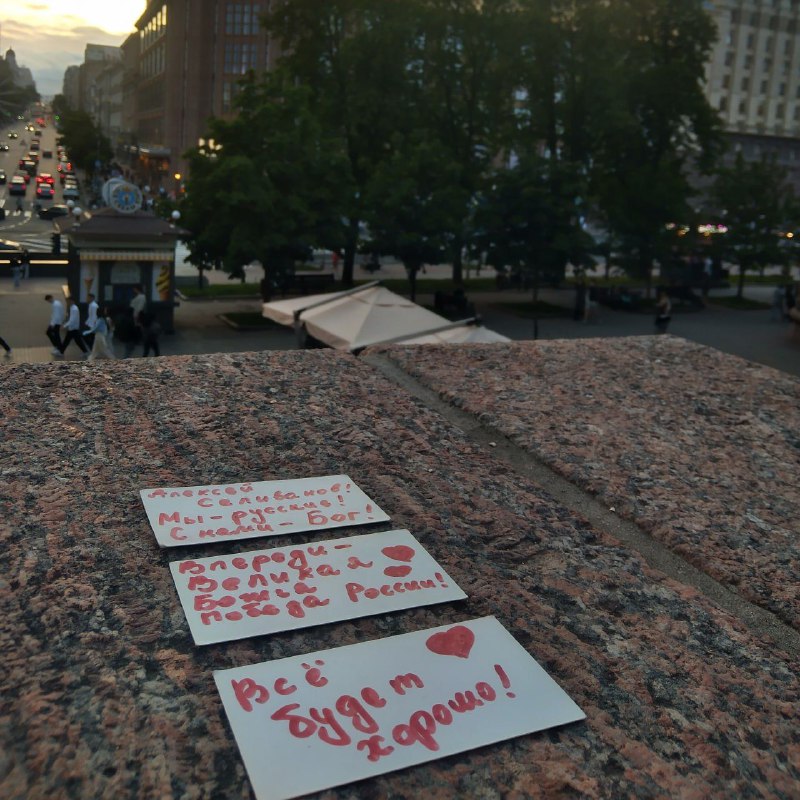 Алексей
Селиванов!
Мы - русские!
С нами - Бог!
Впереди -
Великая
Божья
победа России!
Всё
будет
хорошо!